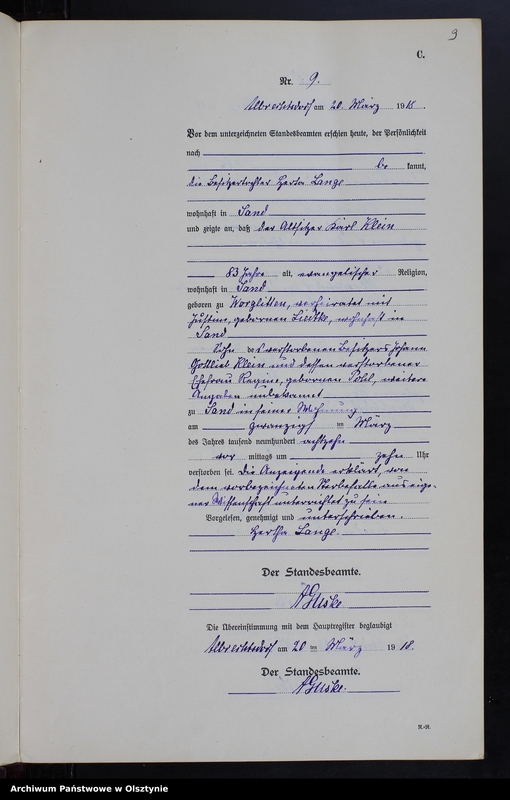 9
C.
Nr. 9.
Albrechtsdorf am 20. März 1918.
Vor dem unterzeichneten Standesbeamten erschien heute, der Persönlichkeit
nach
be kannt,
die Besitzertochter Herta Lange
wohnhaft in Sand
und zeigte an, daß der Altsitzer Karl Klein
83 Jahre alt, evangelischer Religion,
wohnhaft in Sand
geboren zu Worglitten, verheiratet mit
Justine, gebornen Liedtke, wohnhaft in
Sand
Sohn des verstorbenen Besitzers Johann
Gottlieb Klein und dessen verstorbener
Ehefrau Regine, gebornen Pohl, weitere
Angaben unbekannt
zu Sand in seiner Wohnung
am zwanzigsten März
des Jahres tausend neunhundert achtzehn
vor mittags um zehn Uhr
verstorben sei. Die Anzeigende erklärt, von
dem vorbezeichneten Sterbefalle aus eige-
ner Wissenschaft unterrichtet zu sein
Vorgelesen, genehmigt und unterschrieben.
Hertha Lange.
Der Standesbeamte.
Die Übereinstimmung mit dem Hauptregister beglaubigt
Albrechtsdorf am 20 ten März 1918.
Der Standesbeamte.
Archiwum Państwowe w Olsztynie